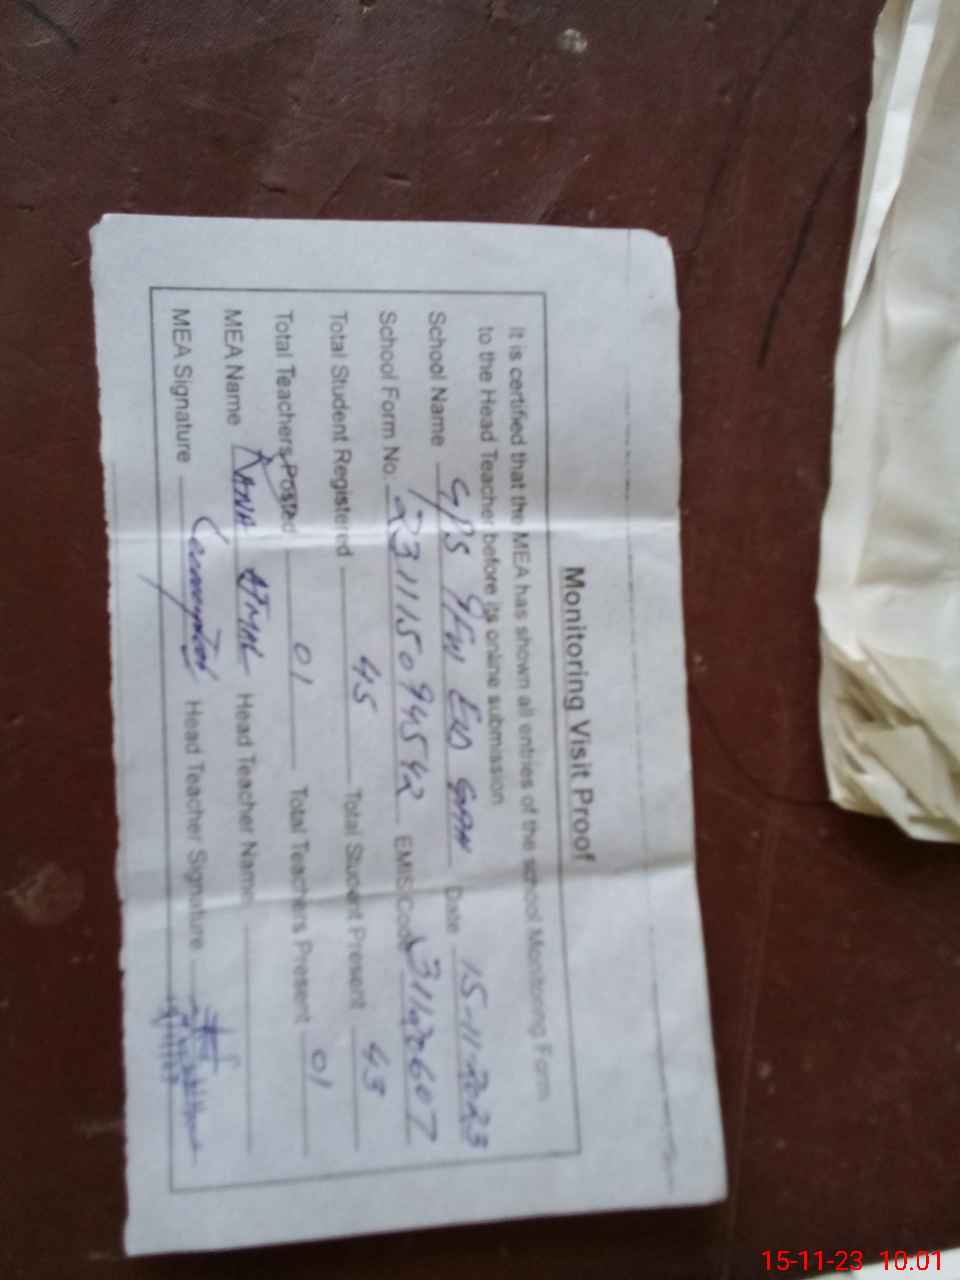 Monitoring Visit Proof
It is certified that the MEA has shown all entries of the school Monitoring Form
to the Head Teacher before its online submission
School Name GPS 9FW Date 15-11-2023
School Form No. 23111509454 EMIS Code 311
Total Student Registered 45 Total Student Present 43
Total Teachers Posted 01 Total Teachers Present 01
MEA Name RANA AJMAL Head Teacher Name
MEA Signature Head Teacher Signature
15-11-23 10:01